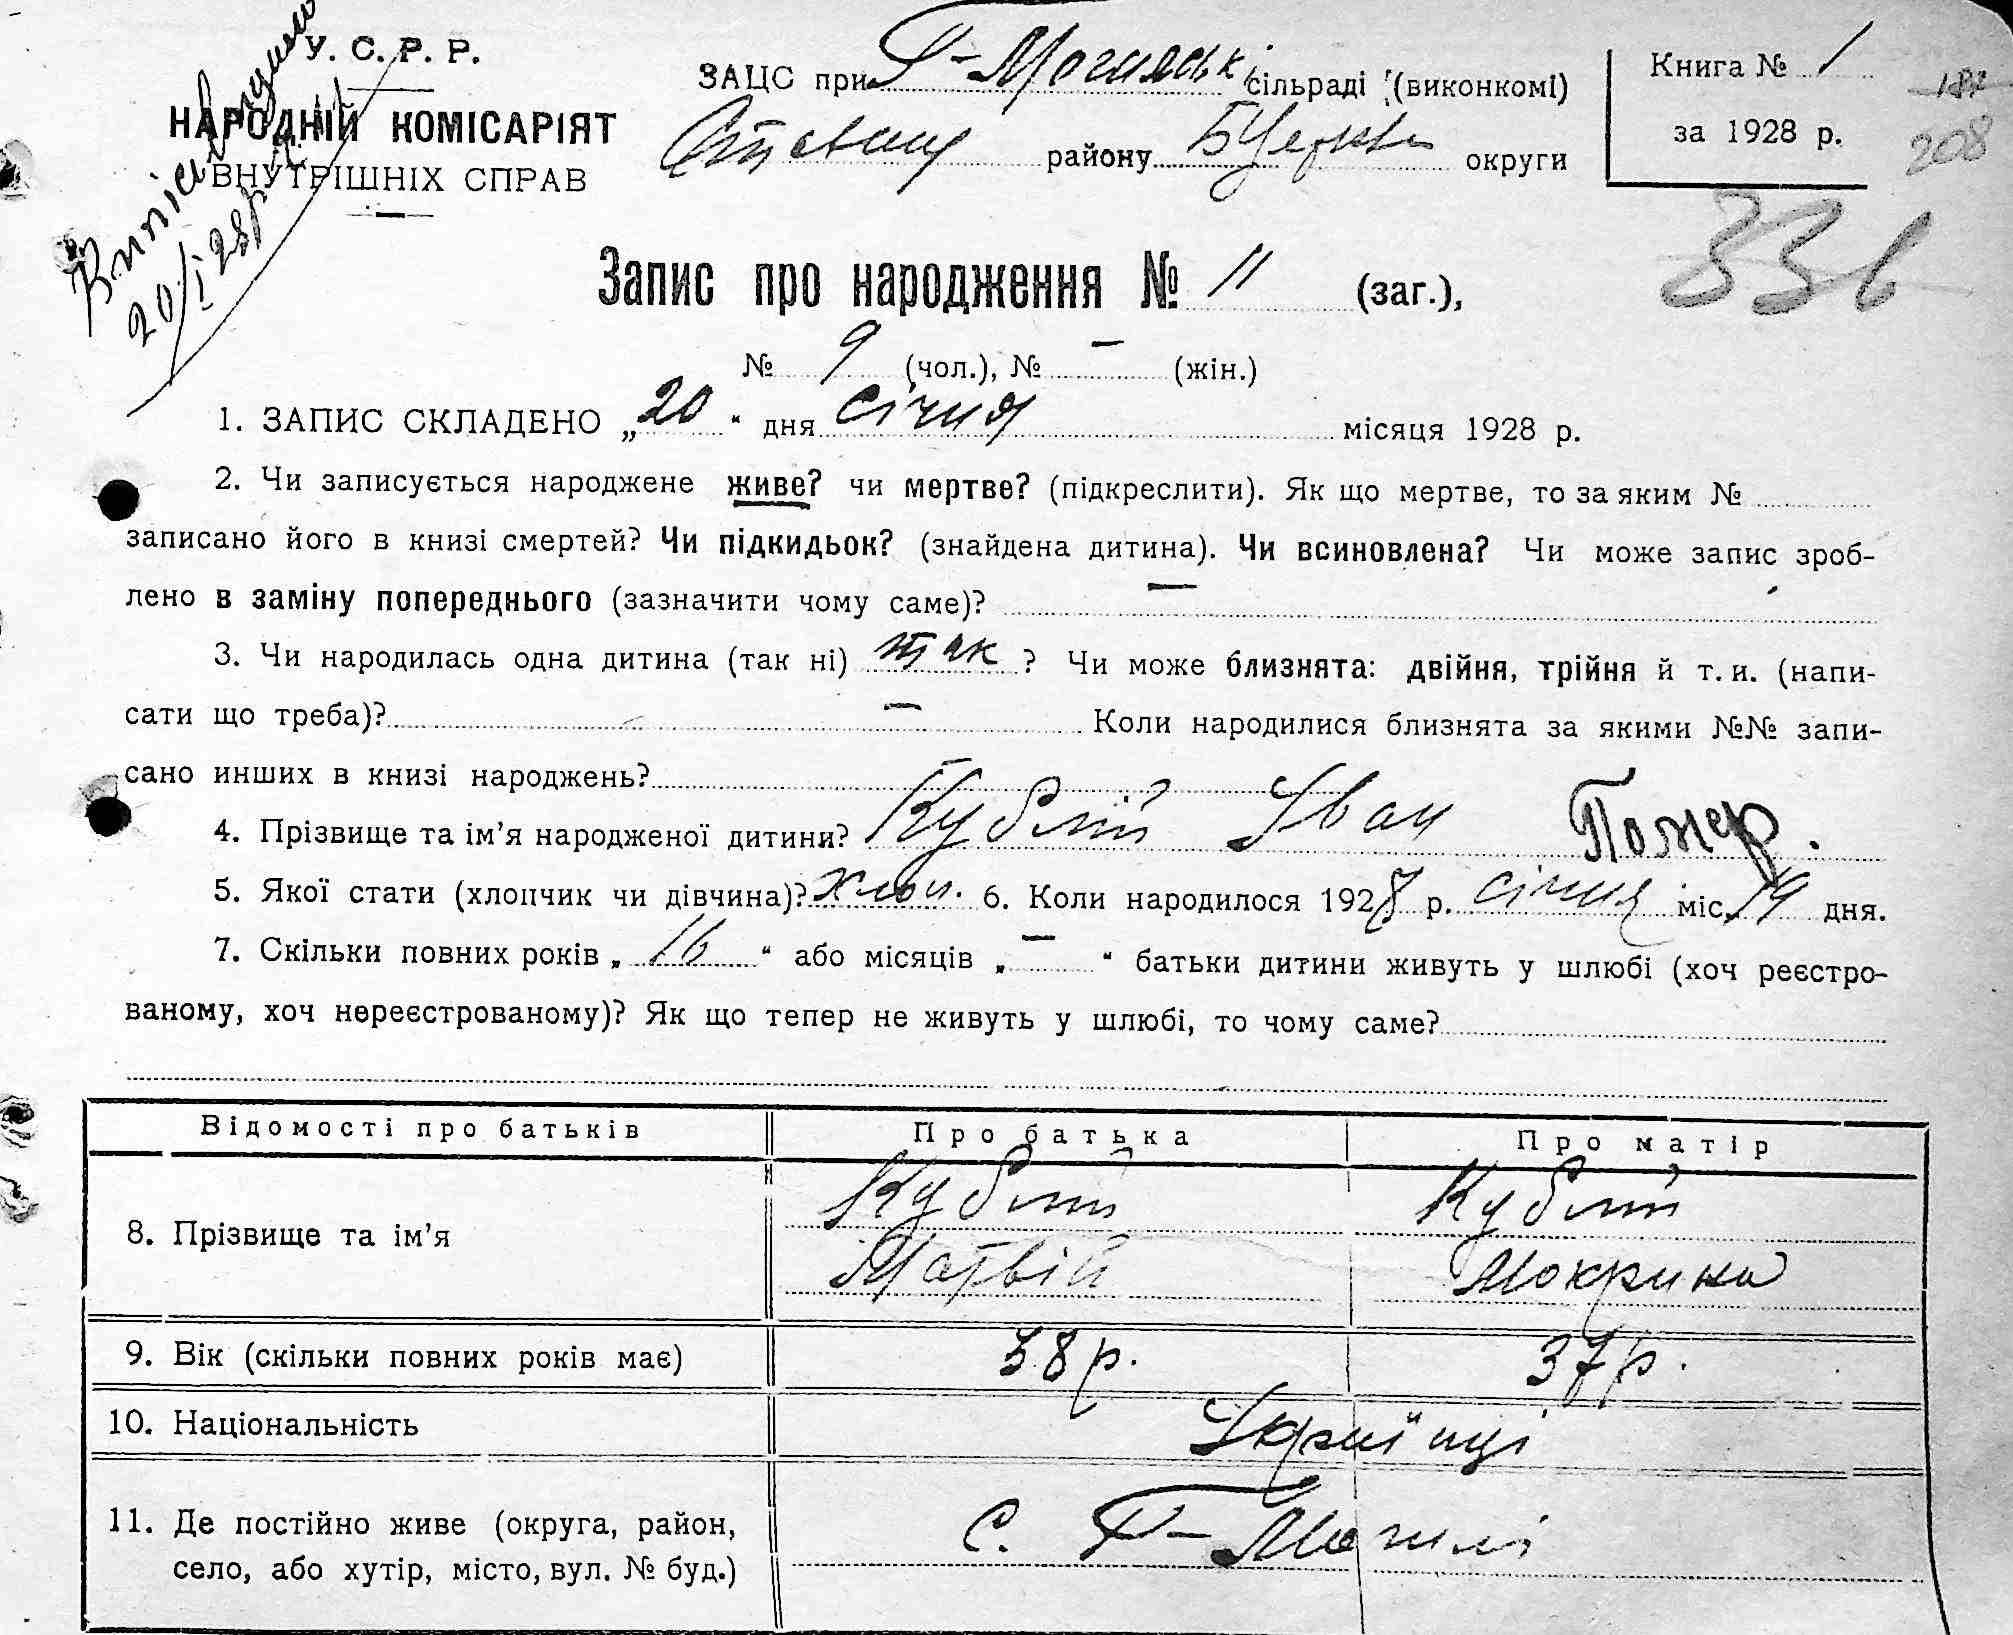 У. С. Р. Р.
НАРОДНІЙ КОМІСАРІЯТ
ВНУТРІШНІХ СПРАВ
20/I 28р
ЗАЦС при Г-Могилській сільраді (виконкомі)
Ставищ району БЦеркв округи
Книга № 1
за 1928 р.
208
Запис про народження № 11 (заг.),
№ 9 (чол.), № – (жін.)
1. ЗАПИС СКЛАДЕНО „20“ дня січня місяця 1928 р.
2. Чи записується народжене живе? чи мертве? (підкреслити). Як що мертве, то за яким №
записано його в книзі смертей? Чи підкидьок? (знайдена дитина). Чи всиновлена? Чи може запис зроб-
лено в заміну попереднього (зазначити чому саме)? –
3. Чи народилась одна дитина (так ні) так ? Чи може близнята: двійня, трійня й т. и. (напи-
сати що треба)? – Коли народилися близнята за якими №№ запи-
сано инших в книзі народжень?
4. Прізвище та ім’я народженої дитини? Кублій Іван Помер.
5. Якої стати (хлопчик чи дівчина)? Хлоп. 6. Коли народилося 1928 р. січня міс. 19 дня.
7. Скільки повних років „16“ або місяців „–“ батьки дитини живуть у шлюбі (хоч реєстро-
ваному, хоч нереєстрованому)? Як що тепер не живуть у шлюбі, то чому саме?
Відомості про батьків Про батька Про матір
8. Прізвище та ім’я Кублій Матвій Кублій Мокрина
9. Вік (скільки повних років має) 38 р. 37 р.
10. Національність Українці
11. Де постійно живе (округа, район,
село, або хутір, місто, вул. № буд.) С. Г-Могилі